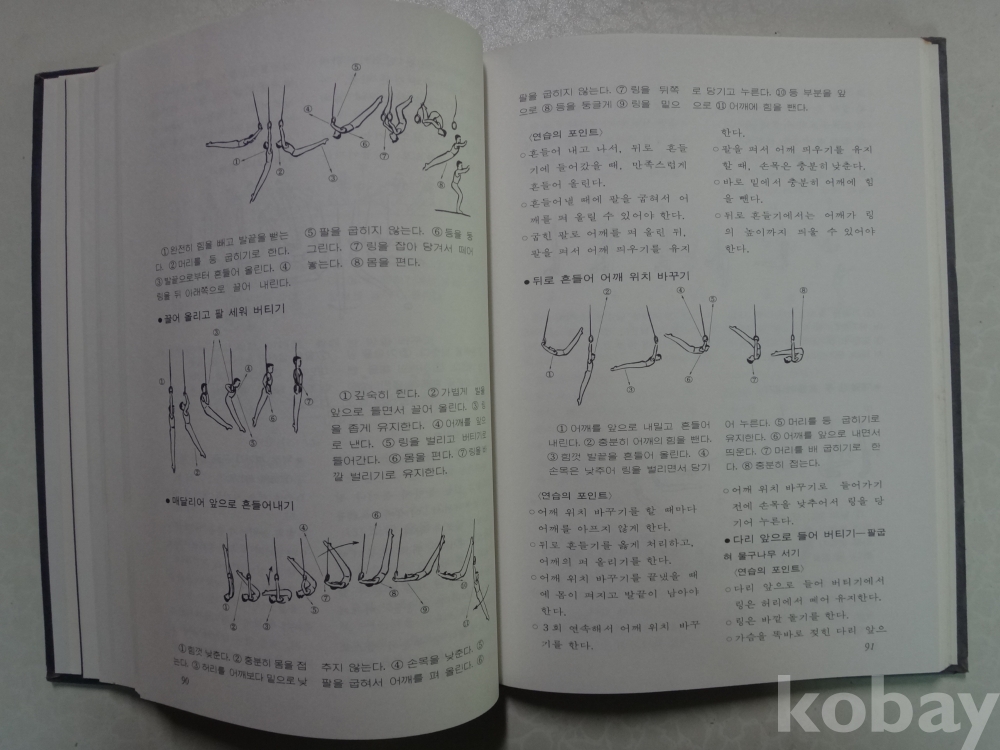 ①완전히 힘을 빼고 발끝을 뻗는
다. ②머리를 등 굽히기로 한다.
③발끝으로부터 흔들어 올린다. ④
링을 뒤 아래쪽으로 끌어 내린다.
⑤팔을 굽히지 않는다. ⑥몸을 둥
그린다. ⑦링을 잡아 당겨서 떼어
놓는다. ⑧몸을 편다.
●끌어 올리고 팔 세워 버티기
①깊숙히 쥔다. ②가볍게 발을
앞으로 들면서 끌어 올린다. ③링
을 좁게 유지한다. ④어깨를 앞으
로 낸다. ⑤링을 벌리고 버티기로
들어간다. ⑥몸을 편다. ⑦링을 바
깥 벌리기로 유지한다.
●매달리어 앞으로 흔들어내기
①힘껏 낮춘다. ②충분히 몸을 접
는다. ③허리를 어깨보다 밑으로 낮
추지 않는다. ④손목을 낮춘다. ⑤
팔을 굽혀서 어깨를 펴 올린다. ⑥
90
팔을 굽히지 않는다. ⑦링을 뒤쪽
으로 ⑧몸을 둥글게 ⑨링을 밑으
로 당기고 누른다. ⑩등 부분을 앞
으로 ⑪어깨에 힘을 뺀다.
〈연습의 포인트〉
○흔들어 내고 나서, 뒤로 흔들
기에 들어갔을 때, 만족스럽게
흔들어 올린다.
○흔들어낼 때에 팔을 굽혀서 어
깨를 펴 올릴 수 있어야 한다.
○굽힌 팔로 어깨를 펴 올린 뒤,
팔을 펴서 어깨 띄우기를 유지
한다.
○팔을 펴서 어깨 띄우기를 유지
할 때, 손목은 충분히 낮춘다.
○바로 밑에서 충분히 어깨에 힘
을 뺀다.
○뒤로 흔들기에서는 어깨가 링
의 높이까지 띄울 수 있어야
한다.
●뒤로 흔들어 어깨 위치 바꾸기
①어깨를 앞으로 내밀고 흔들어
내린다. ②충분히 어깨의 힘을 뺀다.
③힘껏 발끝을 흔들어 올린다. ④
손목은 낮추어 링을 벌리면서 당기
어 누른다. ⑤머리를 등 굽히기로
유지한다. ⑥어깨를 앞으로 내면서
띄운다. ⑦머리를 배 굽히기로 한
다. ⑧충분히 접는다.
〈연습의 포인트〉
○어깨 위치 바꾸기를 할 때마다
어깨를 아프지 않게 한다.
○뒤로 흔들기를 옳게 처리하고,
어깨의 펴 올리기를 한다.
○어깨 위치 바꾸기를 끝냈을 때
에 몸이 펴지고 발끝이 남아야
한다.
○3회 연속해서 어깨 위치 바꾸
기를 한다.
○어깨 위치 바꾸기로 들어가기
전에 손목을 낮추어서 링을 당
기어 누른다.
●다리 앞으로 들어 버티기―팔굽
혀 물구나무 서기
〈연습의 포인트〉
○다리 앞으로 들어 버티기에서
링은 허리에서 떼어 유지한다.
○링은 바깥 돌기를 한다.
○가슴을 똑바로 젖힌 다리 앞으
91
kobay